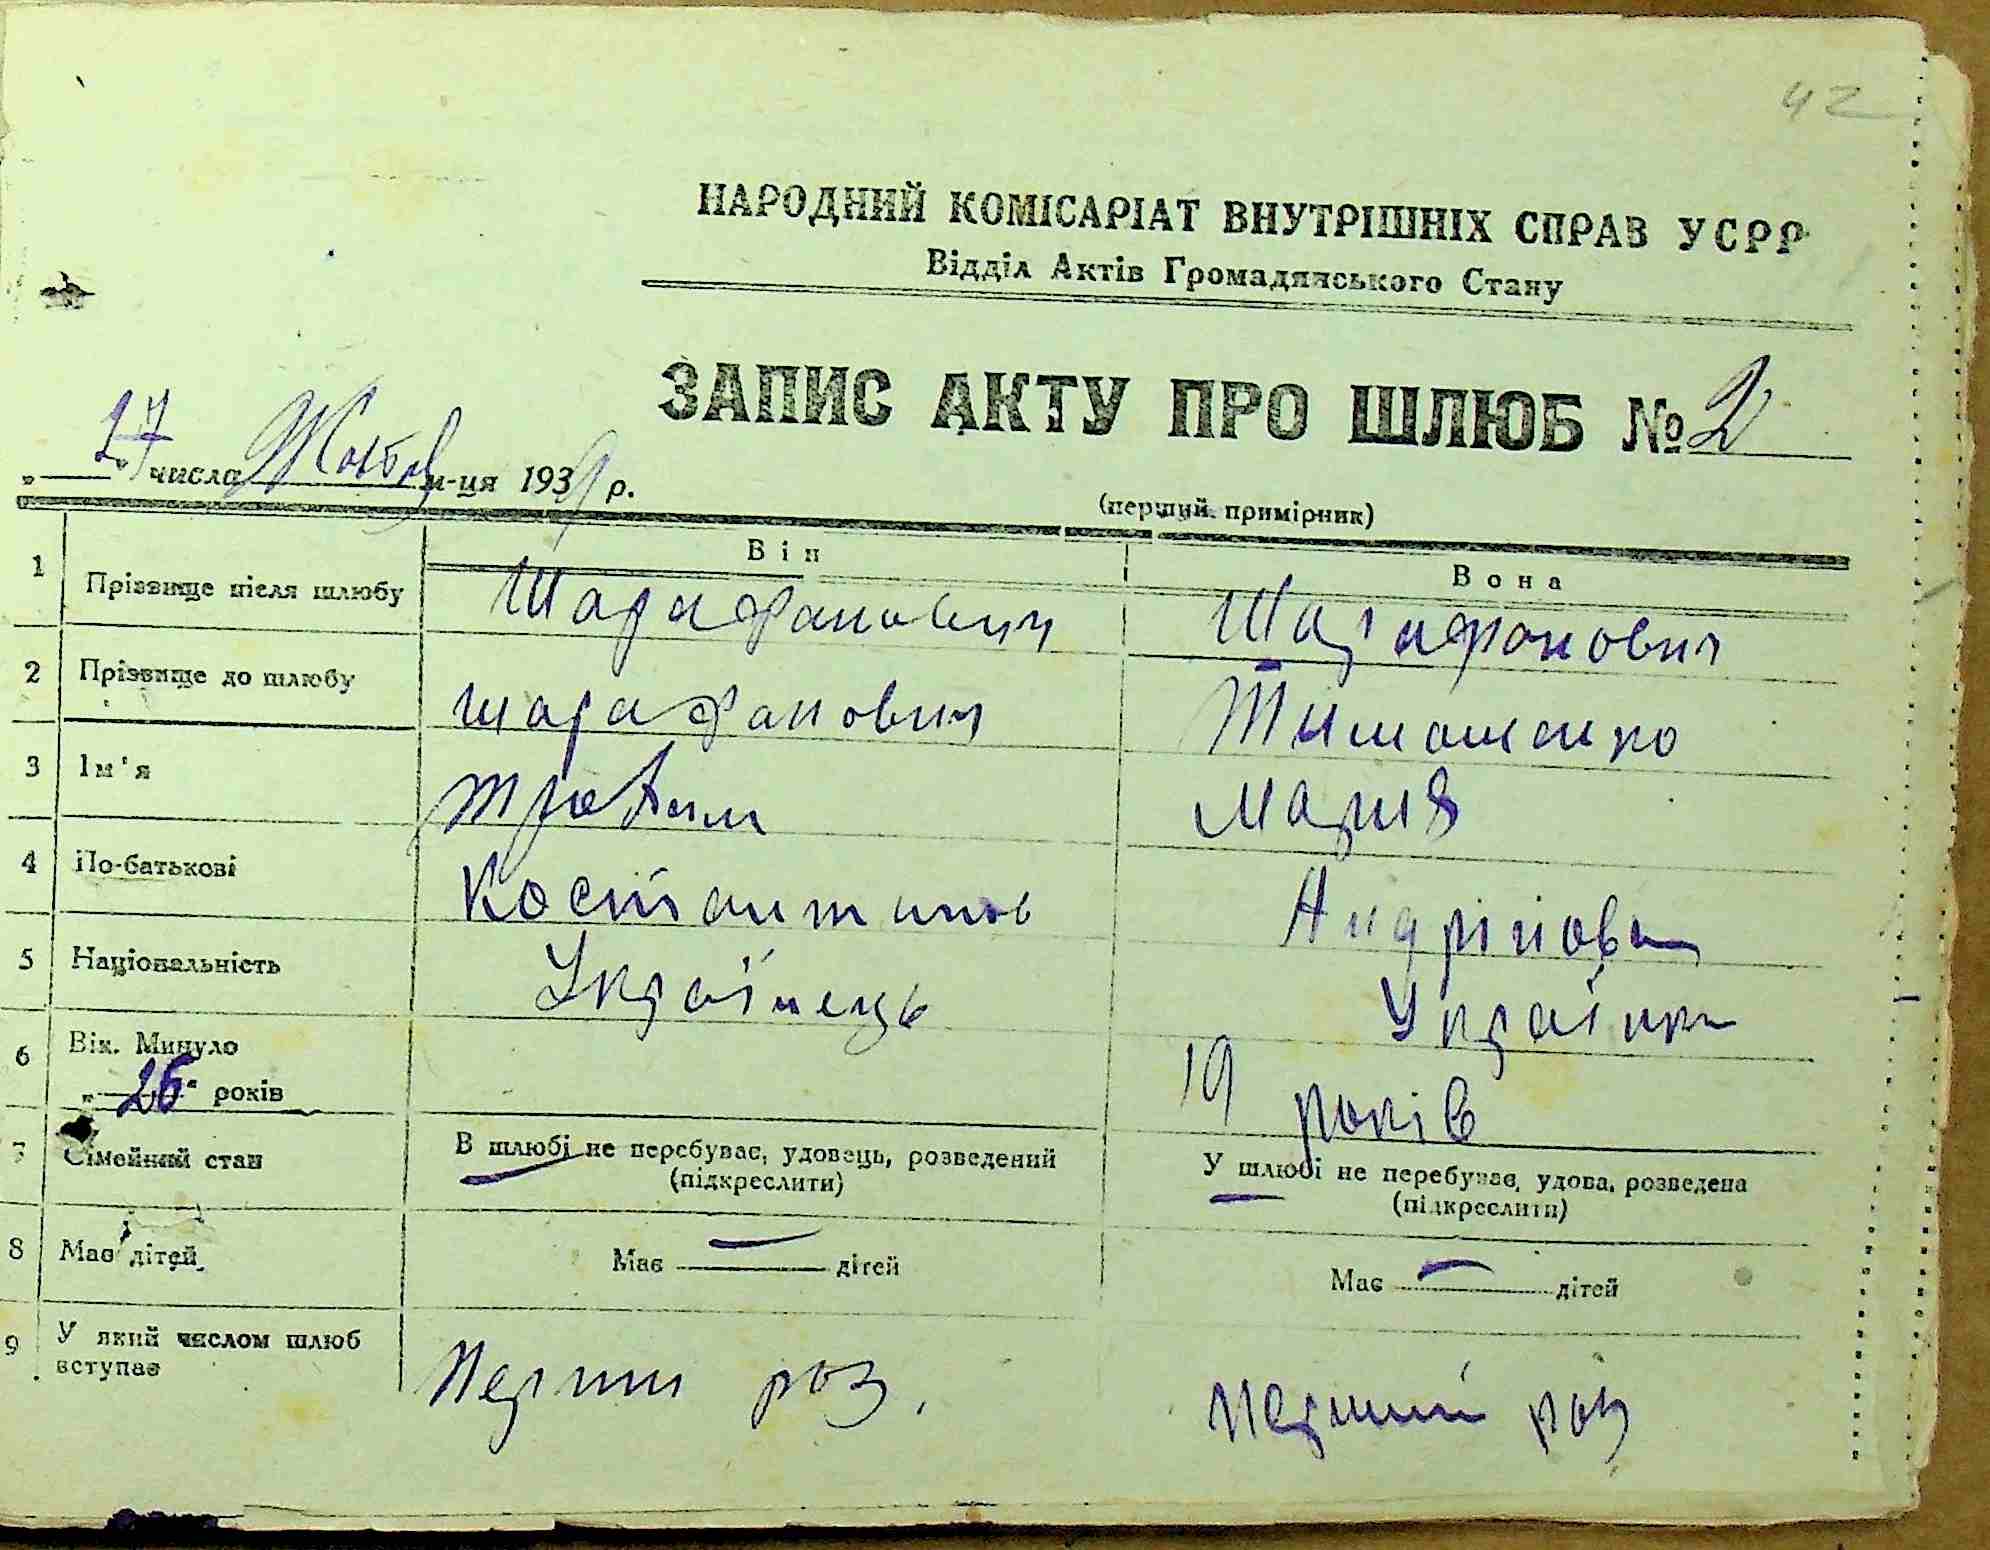 42
НАРОДНИЙ КОМІСАРІАТ ВНУТРІШНІХ СПРАВ УСРР
Відділ Актів Громадянського Стану
ЗАПИС АКТУ ПРО ШЛЮБ № 2
„ 27 числа Жовтня м-ця 1939 р.
(перший примірник)
Він Вона
1 Прізвище після шлюбу Шарафанович Шарафанович
2 Прізвище до шлюбу Шарафанович Тимошенко
3 Ім'я Трохим Мария
4 По-батькові Костантинов Андріїовна
5 Національність Українець Українка
6 Вік. Минуло
„ 26 років 19 років
7 Сімейний стан В шлюбі не перебуває, удовець, розведений (підкреслити) У шлюбі не перебуває, удова, розведена (підкреслити)
8 Має дітей Має — дітей Має — дітей
9 У який числом шлюб вступає Перший раз. Перший раз